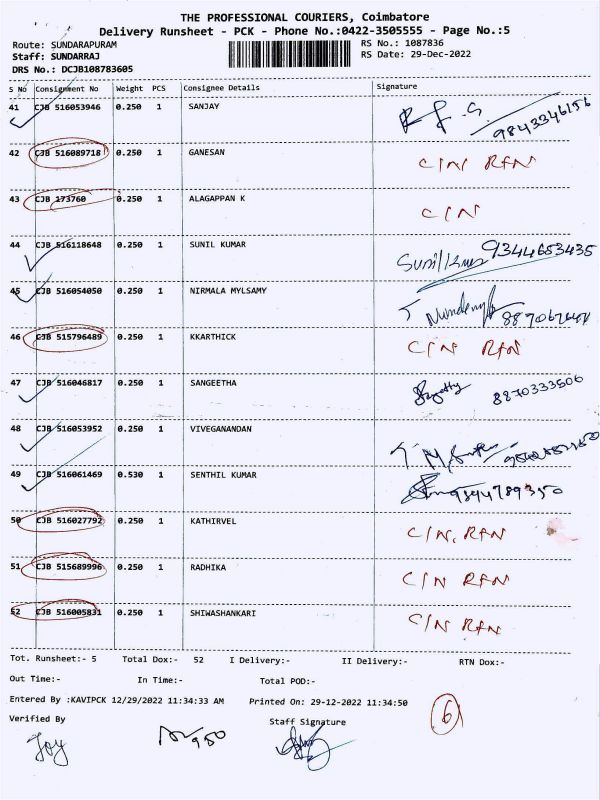 THE PROFESSIONAL COURIERS, Coimbatore
Delivery Runsheet - PCK - Phone No.:0422-3505555 - Page No.:5
Route: SUNDARAPURAM RS No.: 1087836
Staff: SUNDARRAJ RS Date: 29-Dec-2022
DRS No.: DCJB108783605
S No Consignment No Weight PCS Consignee Details Signature
41 CJB 516053946 0.250 1 SANJAY 9843346156
42 CJB 516089718 0.250 1 GANESAN C/N RFN
43 CJB 173760 0.250 1 ALAGAPPAN K C/N
44 CJB 516118648 0.250 1 SUNIL KUMAR 9344653435
45 CJB 516054050 0.250 1 NIRMALA MYLSAMY
46 CJB 515796489 0.250 1 KKARTHICK C/N RFN
47 CJB 516046817 0.250 1 SANGEETHA 8870333506
48 CJB 516053952 0.250 1 VIVEGANANDAN
49 CJB 516061469 0.530 1 SENTHIL KUMAR 9894789350
50 CJB 516027792 0.250 1 KATHIRVEL C/N. RFN
51 CJB 515689996 0.250 1 RADHIKA C/N RFN
52 CJB 516005831 0.250 1 SHIWASHANKARI C/N RFN
Tot. Runsheet:- 5 Total Dox:- 52 I Delivery:- II Delivery:- RTN Dox:-
Out Time:- In Time:- Total POD:-
Entered By :KAVIPCK 12/29/2022 11:34:33 AM Printed On: 29-12-2022 11:34:50 6
Verified By Staff Signature
Joy 950